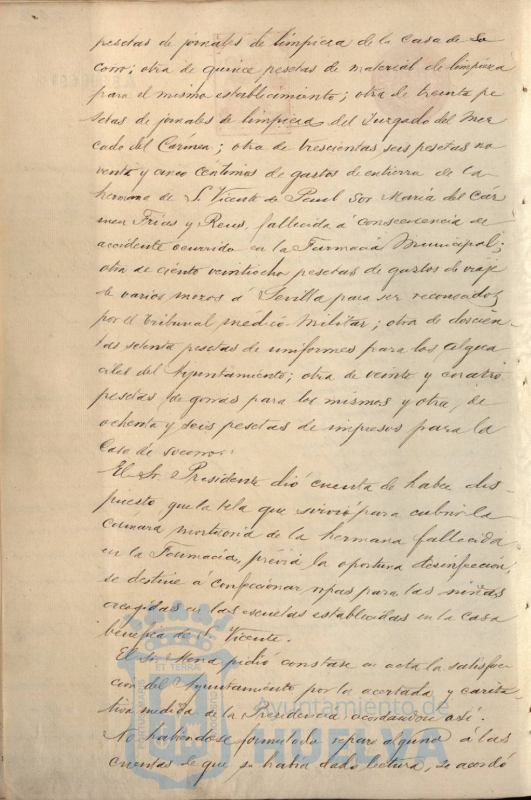 pesetas de jornales de limpieza de la Casa de So
corro; otra de quince pesetas de material de limpieza
para el mismo establecimiento; otra de treinta pe
setas de jornales de limpieza del Juzgado del Mer
cado del Cármen; otra de trescientas seis pesetas no
venta y cinco céntimos de gastos de entierro de la
hermana de S. Vicente de Paul Sor María del Cár
men Frias y Reus, fallecida á consecuencia de
accidente ocurrido en la Farmacia Municipal;
otra de ciento veintiocho pesetas de gastos de viaje
de varios mozos á Sevilla para ser reconocidos
por el tribunal médico militar; otra de doscien-
tas setenta pesetas de uniformes para los algua
ciles del Ayuntamiento; otra de veinte y cuatro
pesetas de gorras para los mismos y otra, de
ochenta y seis pesetas de impresos para la
Casa de socorro.
El Sr. Presidente dió cuenta de haber dis-
puesto que la tela que sirvió para cubrir la
cámara mortuoria de la hermana fallecida
en la Farmacia, prévia la oportuna desinfeccion,
se destine á confeccionar ropas para las niñas
acogidas en las escuelas establecidas en la casa
benéfica de S. Vicente.
El Sr. Mena pidió constase en acta la satisfac-
cion del Ayuntamiento por la acertada y carita
tiva medida de la Presidencia acordandose así.
No habiéndose formulado reparo alguno á las
cuentas de que se habia dado lectura, se acordó
Ayuntamiento de
HUELVA